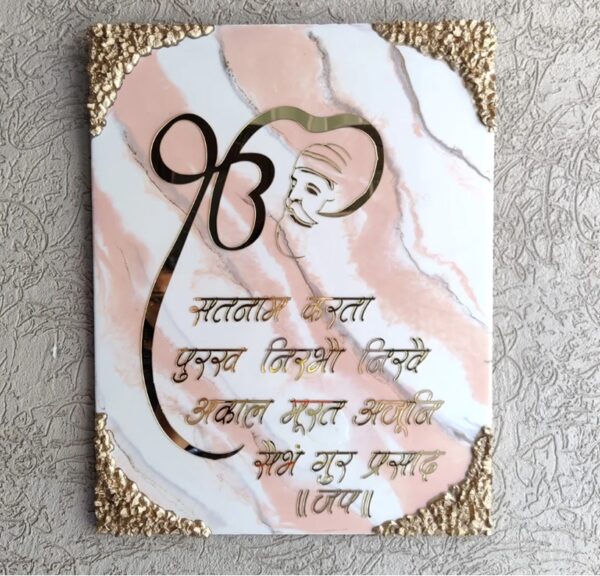 ੴ
सतनाम करता
पुरख निरभौ निरवै
अकाल मूरत अजूनि
सैभं गुर प्रसाद
॥जप॥